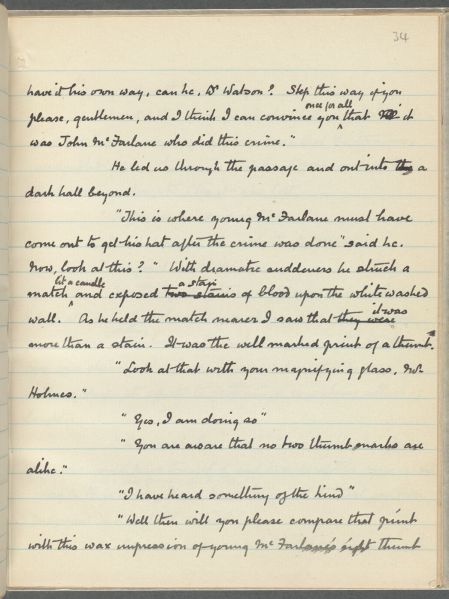 34
have it his own way, can he, Dr Watson? Step this way if you
please, gentlemen, and I think I can convince you once for all that it
was John McFarlane who did this crime."
He led us through the passage and out into a
dark hall beyond.
"This is where young McFarlane must have
come out to get his hat after the crime was done" said he.
Now, look at this?" With dramatic suddenness he struck a
match lit a candle and exposed a stain of blood upon the white washed
wall. As he held the match nearer I saw that it was
more than a stain. It was the well marked print of a thumb.
"Look at that with your magnifying glass, Mr
Holmes."
"Yes, I am doing so"
"You are aware that no two thumb marks are
alike."
"I have heard something of the kind"
"Well then will you please compare that print
with this wax impression of young McFarlane's right thumb